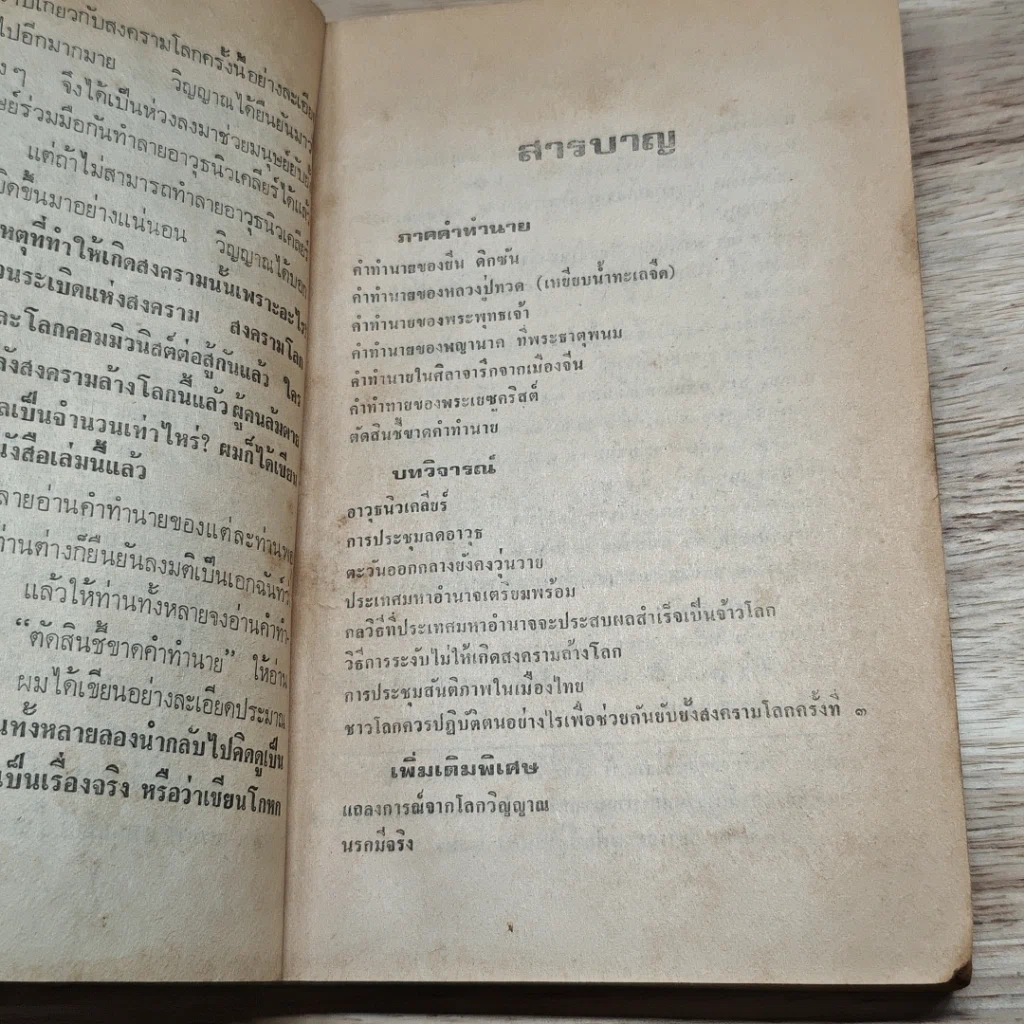 าบเกี่ยวกับสงครามโลกครั้งนี้อย่างละเอียด
ไปอีกมากมาย วิญญาณได้ยืนยันมาว
งๆ จึงได้เป็นห่วงลงมาช่วยมนุษย์ยับยั้
ษย์ร่วมมือกันทำลายอาวุธนิวเคลียร์ได้แล้ว
แต่ถ้าไม่สามารถทำลายอาวุธนิวเคลียร์
กิดขึ้นมาอย่างแน่นอน วิญญาณได้บอก
หตุที่ทำให้เกิดสงครามนั้นเพราะอะไร
วนระเบิดแห่งสงคราม สงครามโลก
ละโลกคอมมิวนิสต์ต่อสู้กันแล้ว ใคร
ลังสงครามล้างโลกนี้แล้ว ผู้คนล้มตาย
ลเป็นจำนวนเท่าไหร่? ผมก็ได้เขียน
นังสือเล่มนี้แล้ว
ลายอ่านคำทำนายของแต่ละท่าน
ท่านต่างก็ยืนยันลงมติเป็นเอกฉันท์ว่
แล้วให้ท่านทั้งหลายจงอ่านคำทำ
“ตัดสินชี้ขาดคำทำนาย” ให้อ่าน
ผมได้เขียนอย่างละเอียดประมาณ
นทั้งหลายลองนำกลับไปคิดดูเป็น
เป็นเรื่องจริง หรือว่าเขียนโกหก
สารบาญ
ภาคคำทำนาย
คำทำนายของยีน ดิกซัน
คำทำนายของหลวงปู่ทวด (เหยียบน้ำทะเลจืด)
คำทำนายของพระพุทธเจ้า
คำทำนายของพญานาค ที่พระธาตุพนม
คำทำนายในศิลาจารึกจากเมืองจีน
คำทำทายของพระเยซูคริสต์
ตัดสินชี้ขาดคำทำนาย
บทวิจารณ์
อาวุธนิวเคลียร์
การประชุมลดอาวุธ
ตะวันออกกลางยังคงวุ่นวาย
ประเทศมหาอำนาจเตรียมพร้อม
กลวิธีที่ประเทศมหาอำนาจจะประสบผลสำเร็จเป็นจ้าวโลก
วิธีการระงับไม่ให้เกิดสงครามล้างโลก
การประชุมสันติภาพในเมืองไทย
ชาวโลกควรปฏิบัติตนอย่างไรเพื่อช่วยกันยับยั้งสงครามโลกครั้งที่ ๓
เพิ่มเติมพิเศษ
แถลงการณ์จากโลกวิญญาณ
นรกมีจริง